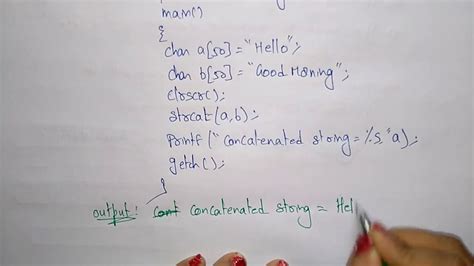 main()
{
char a[50]="Hello";
char b[50]="Good Morning";
clrscr();
strcat(a,b);
printf("concatenated string=%s"a);
getch();
}
output: cont concatenated string = Hel